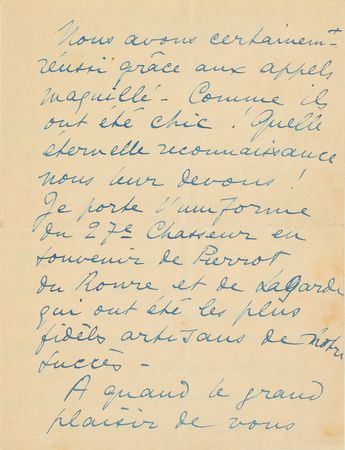 Nous avons certainemt
réussi grâce aux appels
maquillé - Comme ils
ont été chic ! Quelle
éternelle reconnaissance
nous leur devons !
Je porte l'uniforme
du 27e Chasseur en
souvenir de Pierrot
du Roure et de LaGarde
qui ont été les plus
fidèls artisans de notre
succès -
A quand le grand
plaisir de vous